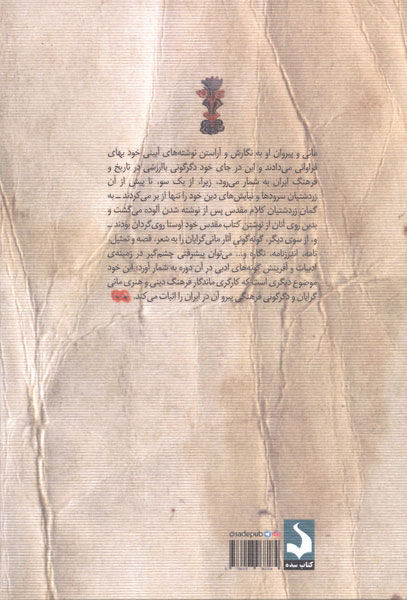 مانی و پیروان او به نگارش و آراستن نوشته‌های آیینی خود بهای
فراوانی می‌دادند و این در جای خود دگرگونی باارزشی در تاریخ و
فرهنگ ایران به شمار می‌رود، زیرا، از یک سو، تا پیش از آن
زردشتیان سرودها و نیایش‌های دین خود را تنها از بر می‌کردند ـ به
گمان زردشتیان کلام مقدس پس از نوشته شدن آلوده می‌گشت و
بدین روی آنان از نوشتن کتاب مقدس خود اوستا روی‌گردان بودند ـ
و، از سوی دیگر، گونه‌گونی آثار مانی‌گرایان را به شعر، قصه و تمثیل،
نامه، اندرزنامه، نگاره و... می‌توان پیشرفتی چشم‌گیر در زمینه‌ی
ادبیات و آفرینش گونه‌های ادبی در آن دوره به شمار آورد؛ این خود
موضوع دیگری است که کارگری ماندگار فرهنگ دینی و هنری مانی
گرایان و دگرگونی فرهنگی پیرو آن در ایران را اثبات می‌کند.
@sadepub
کتاب سده